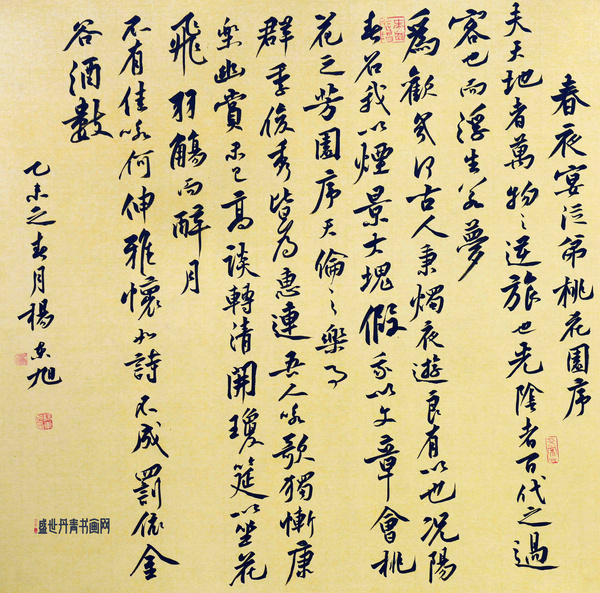 春夜宴從弟桃花園序
夫天地者萬物之逆旅也光陰者百代之過
客也而浮生若夢
爲歡幾何古人秉燭夜遊良有以也況陽
春召我以煙景大塊假我以文章會桃
花之芳園序天倫之樂事
群季俊秀皆為惠連吾人詠歌獨慚康
樂幽賞未已高談轉清開瓊筵以坐花
飛羽觴而醉月
不有佳詠何伸雅懷如詩不成罰依金
谷酒數
乙未之春月楊東旭
盛世丹青书画网